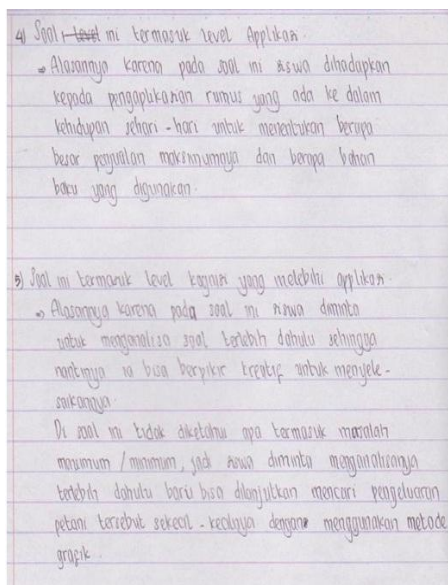 4) Soal ini termasuk level Applikasi.
⇒ Alasannya karena pada soal ini siswa dihadapkan
kepada pengaplikasian rumus yang ada ke dalam
kehidupan sehari-hari untuk menentukan berapa
besar penjualan maksimumnya dan berapa bahan
baku yang digunakan.
5) Soal ini termasuk level kognisi yang melebihi applikasi.
⇒ Alasannya karena pada soal ini siswa diminta
untuk menganalisa soal terlebih dahulu sehingga
nantinya ia bisa berpikir kreatif untuk menyele-
saikannya.
Di soal ini tidak diketahui apa termasuk masalah
maximum/minimum, jadi siswa diminta menganalisanya
terlebih dahulu baru bisa dilanjutkan mencari pengeluaran
petani tersebut sekecil-kecilnya dengan menggunakan metode
grafik.